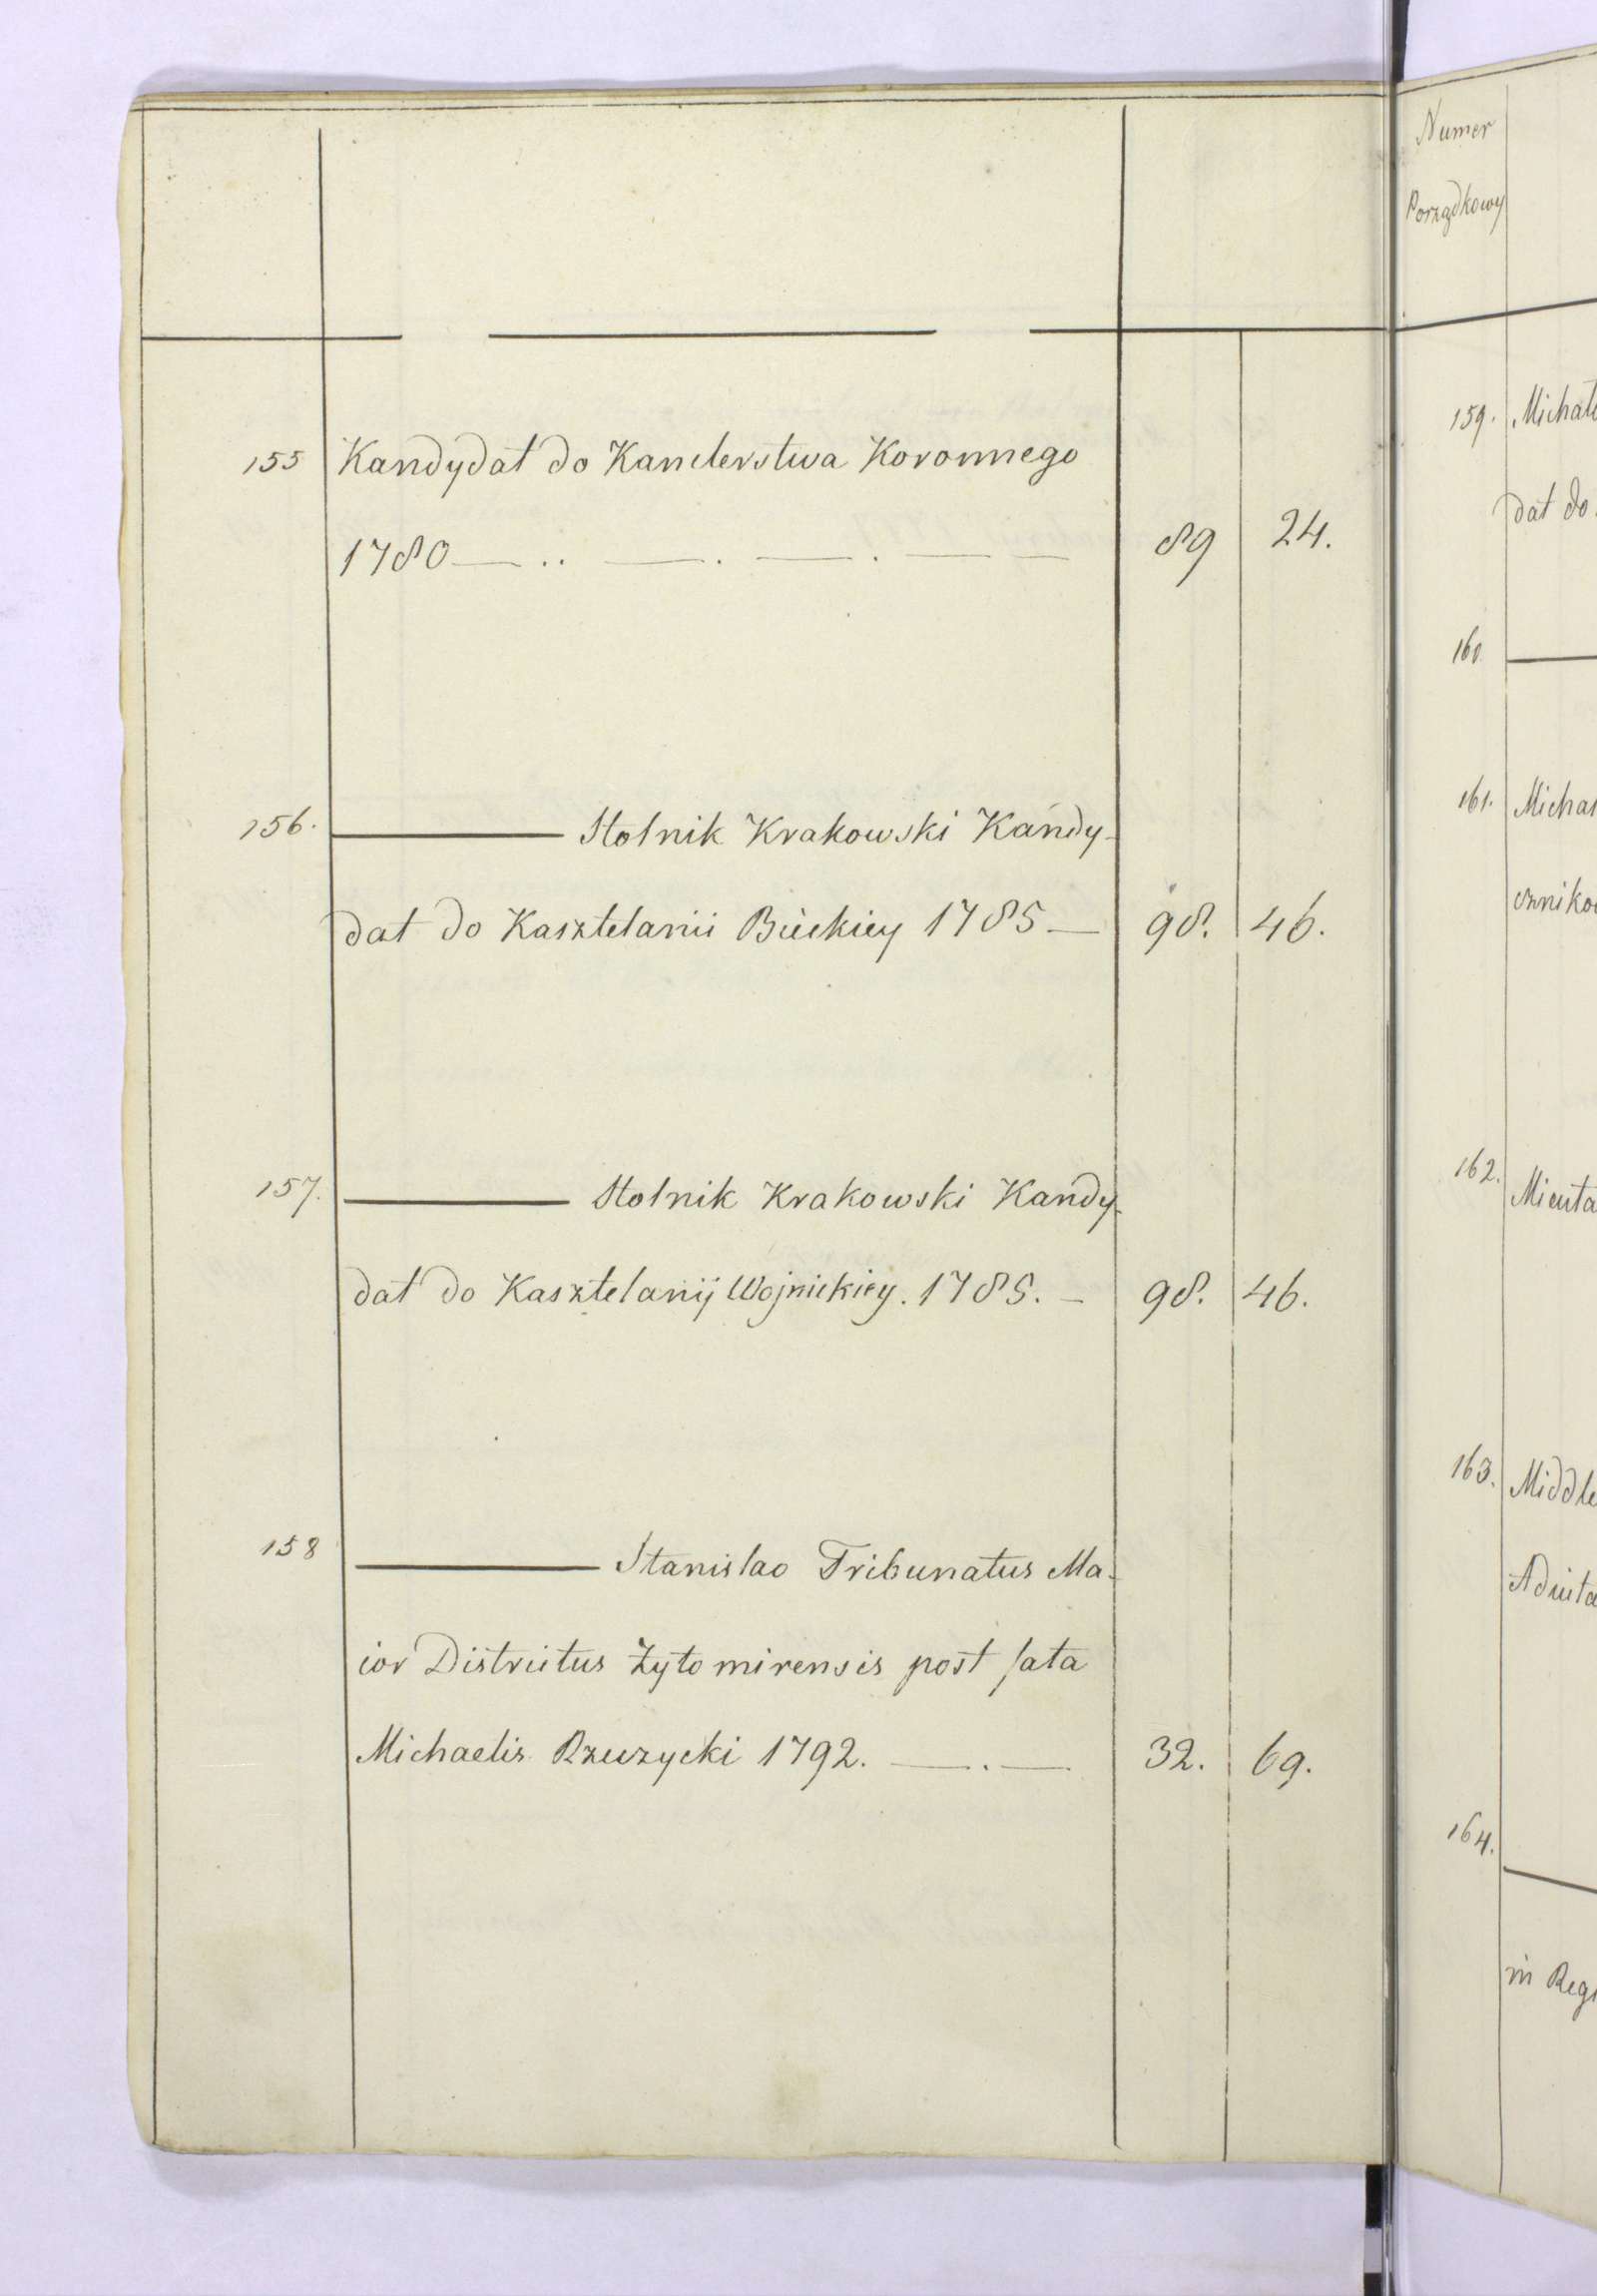 155 Kandydat do Kanclerstwa Koronnego
1780 — .. — . — . — — 89 24.
156. ——— Stolnik Krakowski Kandy-
dat do Kasztelanii Bieckiey 1785 — 98. 46.
157. ——— Stolnik Krakowski Kandy-
dat do Kasztelanij Wojnickiey. 1785. — 98. 46.
158 ——— Stanislao Tribunatus Ma-
ior Districtus Żytomirensis post fata
Michaelis 1792. — . — 32. 69.
Numer
Porządkowy
159.
dat do
160.
161.
162.
163.
164.
in